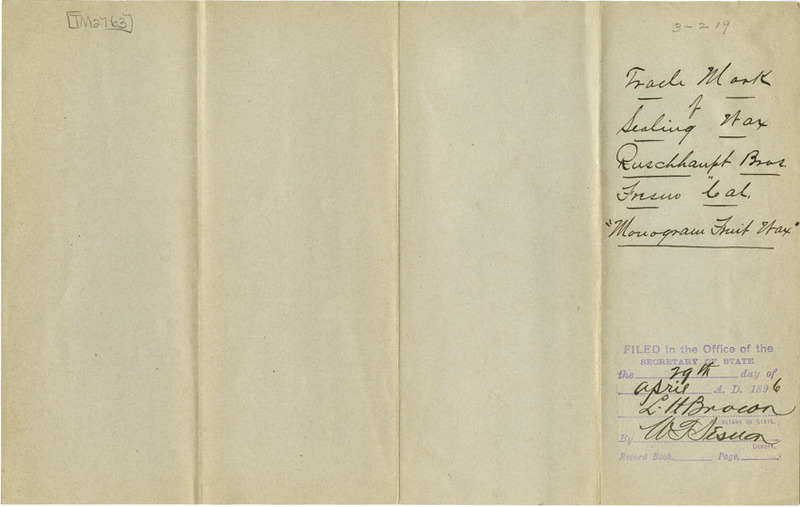 TM2763
3-2 19
Trade Mark
of
Sealing Wax
Ruschhaupt Bros.
Fresno Cal.
"Monogram Fruit Wax"
FILED in the Office of the
SECRETARY OF STATE
the 29th day of
april A. D. 1896
L. H. Brown
SECRETARY OF STATE.
By W. T. Sesnon
DEPUTY.
Record Book, Page,